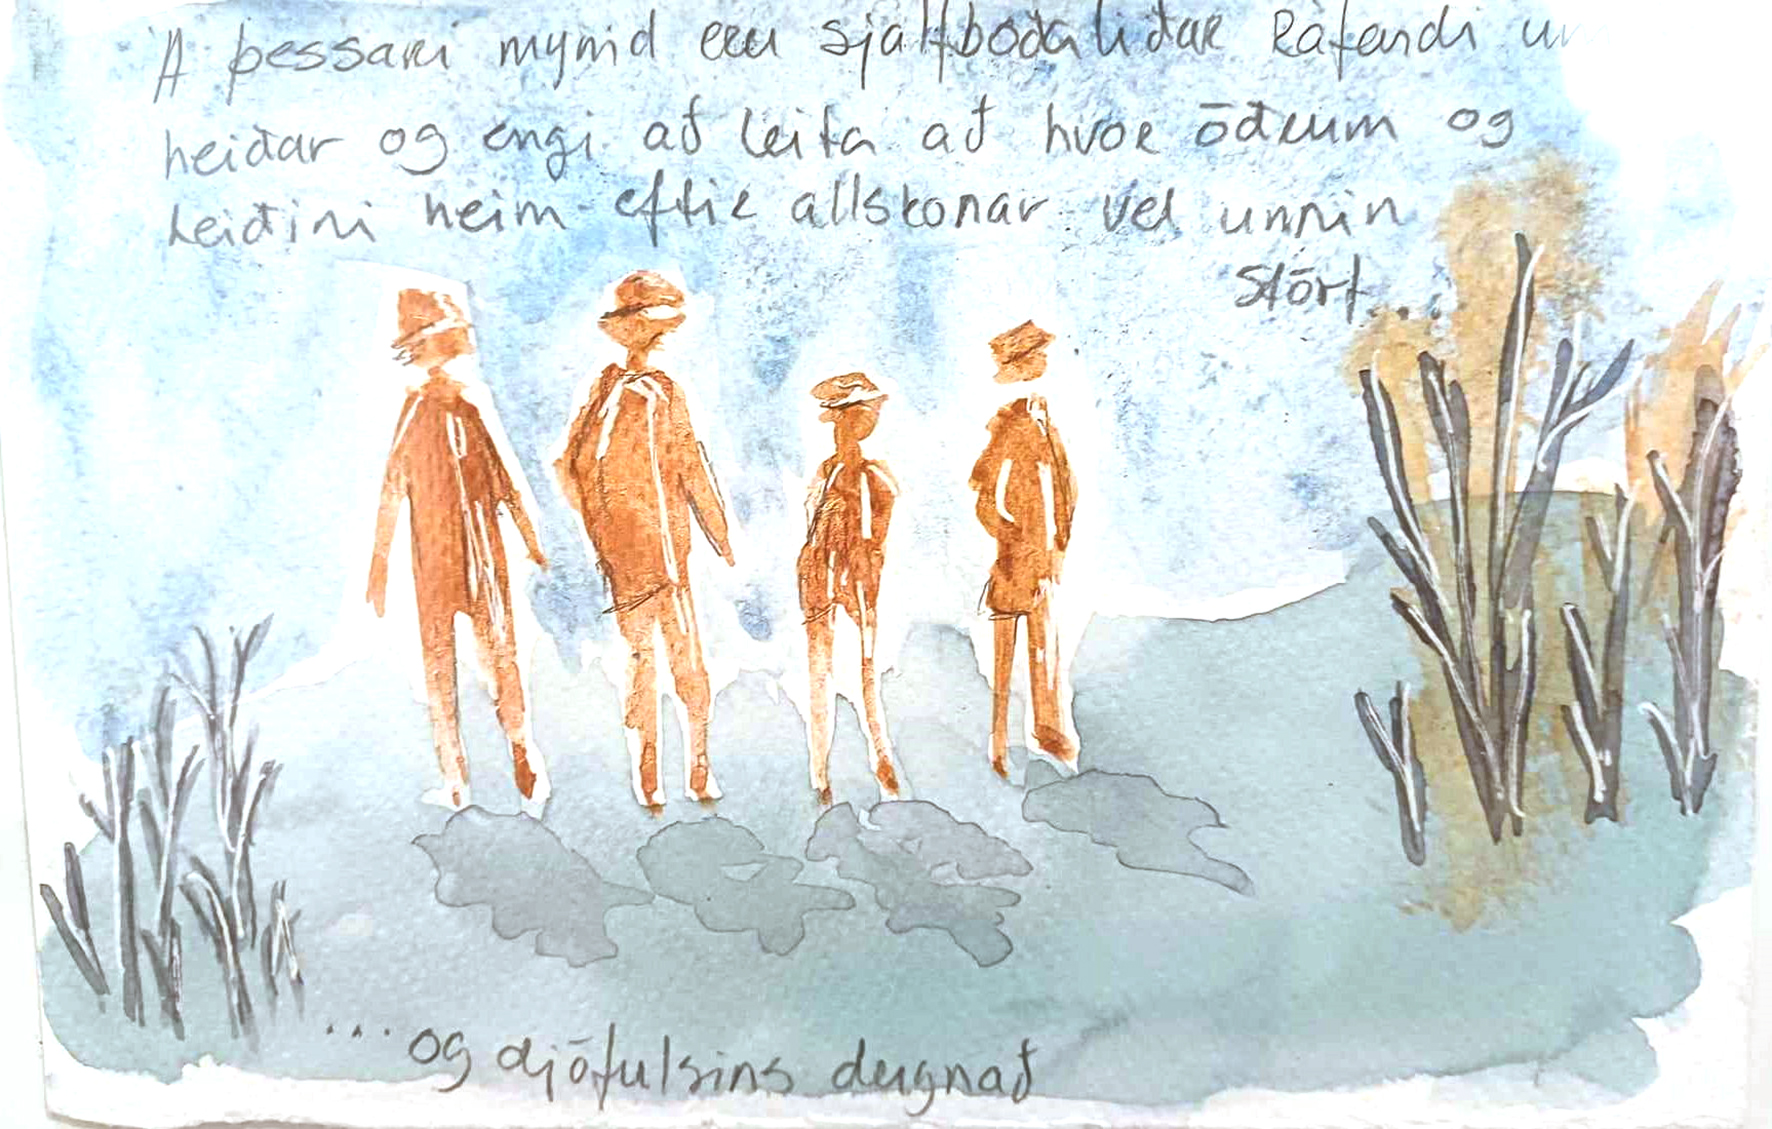 Á þessari mynd eru sjálfboðaliðar Ráfandi um
heiðar og engi að leita að hvor öðrum og
Leiðini heim eftir allskonar vel unnin
Störf..
...og djöfulsins dugnað